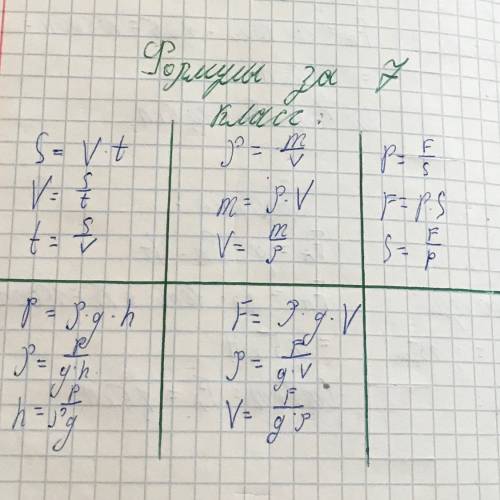 Формулы за 7
класс:
S = V · t
V = S/t
t = S/V
ρ = m/V
m = ρ · V
V = m/ρ
P = F/S
F = P · S
S = F/P
P = ρ · g · h
ρ = P/g·h
h = P/ρ·g
F = ρ · g · V
ρ = F/g·V
V = F/g·ρ